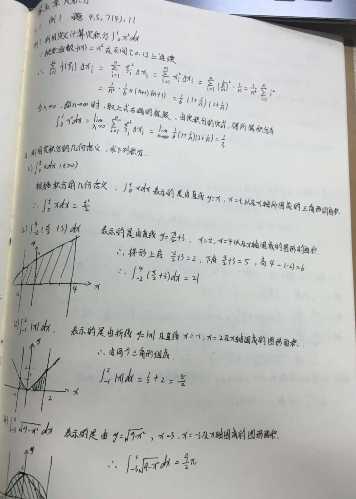 例1 利用定义计算定积分 ∫₀¹x²dx
因被积函数f(x)=x²在区间[0,1]上连续
∴ Σf(ξi)Δxi = Σξi²Δxi = Σxi²Δxi = Σ(i/n)²·1/n = 1/n³ Σi²
= 1/n³·1/6 n(n+1)(2n+1) = 1/6(1+1/n)(2+1/n)
当λ→0,即n→∞时,取上式右端的极限,
∫₀¹x²dx = lim Σξi²Δxi = lim 1/6(1+1/n)(2+1/n) = 1/3
4. 利用定积分的几何意义,求下列积分.
1) ∫₀ᵗxdx (t>0)
根据定积分的几何意义,∫₀ᵗxdx 表示的是由直线y=x, x=t以及x轴所围成的三角形的面积
∴ ∫₀ᵗxdx = t²/2
2) ∫₋₂⁴(x/2+3)dx 表示的是由直线y=x/2+3, x=-2, x=4以及x轴围成的图形的面积
∴ 梯形上底 x/2+3=2, 下底 x/2+3=5, 高4-(-2)=6
∴ ∫₋₂⁴(x/2+3)dx=21
-2 4 x
3) ∫₋₁²|x|dx, 表示的是由折线y=|x|及直线x=-1, x=2及x轴围成的图形面积.
∴ 由两个三角形组成
∫₋₁²|x|dx = 1/2+2 = 5/2
2 x
4) ∫₋₃³√(9-x²)dx 表示的是由y=√(9-x²), x=3, x=-3及x轴围成的图形面积.
∴ ∫₋₃³√(9-x²)dx = 9/2 π